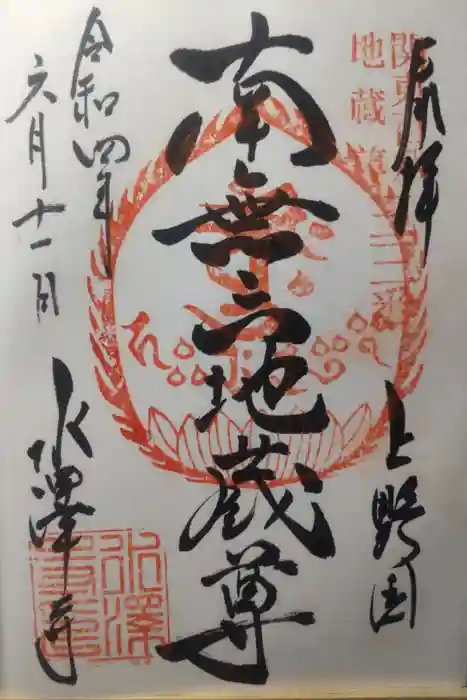 奉拝
上野国
関東百八
地蔵第二二番
南無六地蔵尊
令和四年
六月十一日
水澤寺
水澤
寺